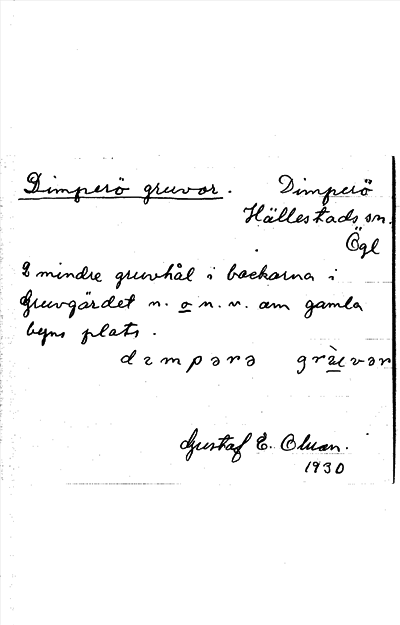 Dimperö gruvor. Dimperö
Hällestads sn.
Ögl
2 mindre gruvhål i backarna i
Gruvgärdet n. o n. v. om gamla
byns plats.
dɪmpərə grùvər
Gustaf E. Olsson.
1930